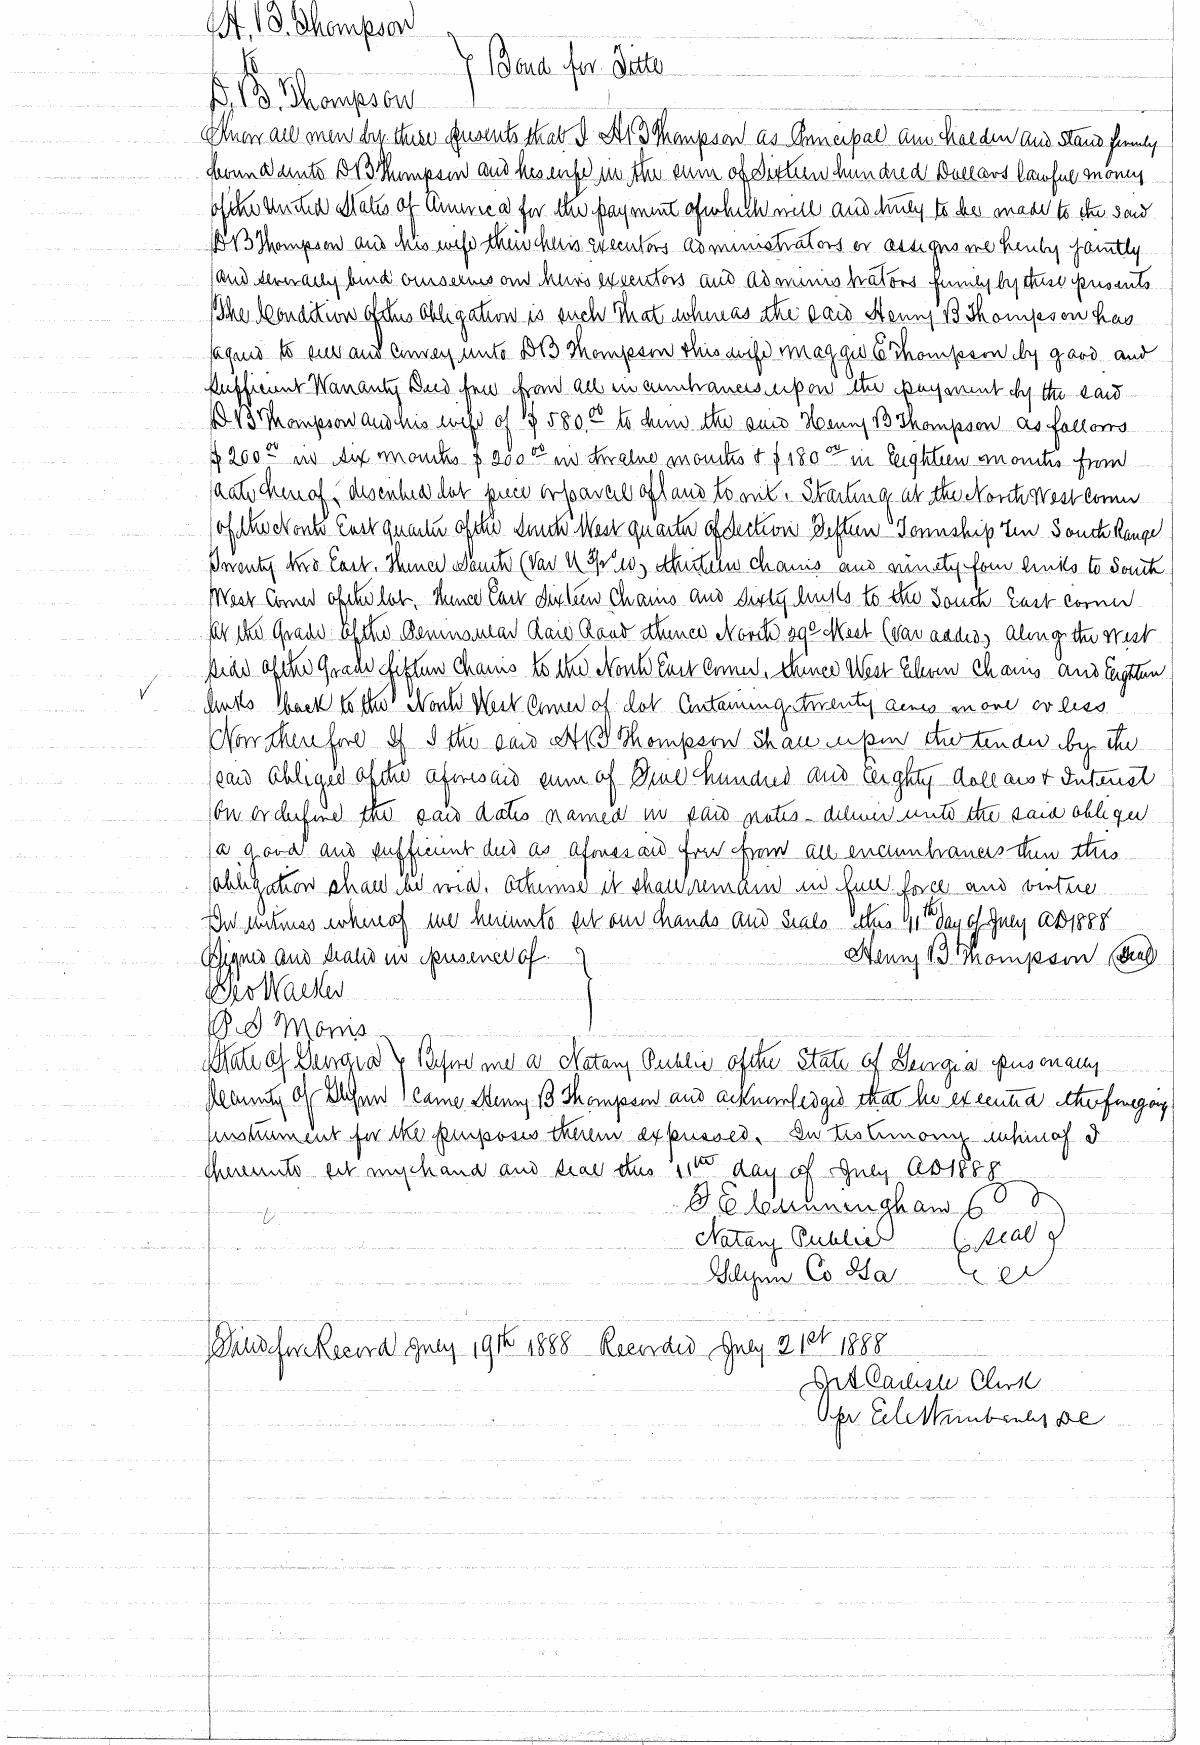 H. B. Thompson
to } Bond for Title
D. B. Thompson
Know all men by these presents that I H B Thompson as Principal am holden and Stand firmly
bound unto D B Thompson and his wife in the sum of Sixteen hundred Dollars lawful money
of the United States of America for the payment of which well and truly to be made to the said
D B Thompson and his wife their heirs executors administrators or assigns we hereby jointly
and severally bind ourselves our heirs executors and administrators firmly by these presents
The Condition of this obligation is such That whereas the said Henry B Thompson has
agreed to sell and convey unto D B Thompson & his wife Maggie E Thompson by good and
sufficient Warranty Deed free from all incumbrances upon the payment by the said
D B Thompson and his wife of $580.00 to him the said Henry B Thompson as follows
$200.00 in six months $200.00 in twelve months & $180.00 in Eighteen months from
date hereof, described lot piece or parcel of land to wit. Starting at the North West Corner
of the North East quarter of the South West quarter of Section Fifteen Township Ten South Range
Twenty two East. Thence South (Var thirteen chains and ninety four links to South
West Corner of the lot, thence East Sixteen Chains and Sixty links to the South East corner
at the Grade of the Peninsular Rail Road thence North 29° West (Var added) along the West
side of the Grade fifteen Chains to the North East Corner, thence West Eleven Chains and Eighteen
links back to the North West Corner of lot Containing twenty acres more or less
Now therefore If I the said H B Thompson Shall upon the tender by the
said obligee of the aforesaid sum of Five hundred and Eighty dollars & Interest
on or before the said dates named in said notes - deliver unto the said obligee
a good and sufficient deed as aforesaid free from all encumbrances then this
obligation shall be void. Otherwise it shall remain in full force and virtue
In witness whereof we hereunto set our hands and Seals this 11th day of July AD 1888
Signed and Sealed in presence of } Henry B Thompson (Seal)
Geo Walker
P. S Morris
State of Georgia } Before me a Notary Public of the State of Georgia personally
County of Glynn } came Henry B Thompson and acknowledged that he executed the foregoing
instrument for the purposes therein expressed. In testimony whereof I
hereunto set my hand and seal this 11th day of July AD 1888
J E Cunningham
Notary Public (seal)
Glynn Co Ga
Filed for Record July 19th 1888 Recorded July 21st 1888
J A Carlisle Clerk
pr DC